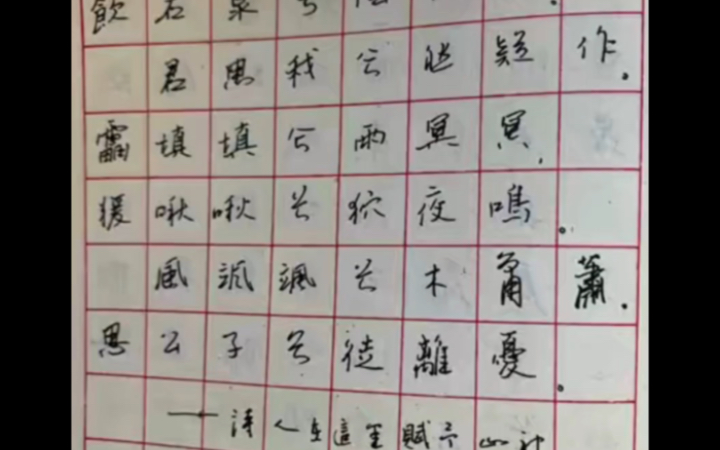 飲石泉兮
君思我兮然疑作。
靁填填兮雨冥冥，
猨啾啾兮狖夜鳴。
風颯颯兮木蕭蕭．
思公子兮徒離憂。
一詩人在這里賦予山